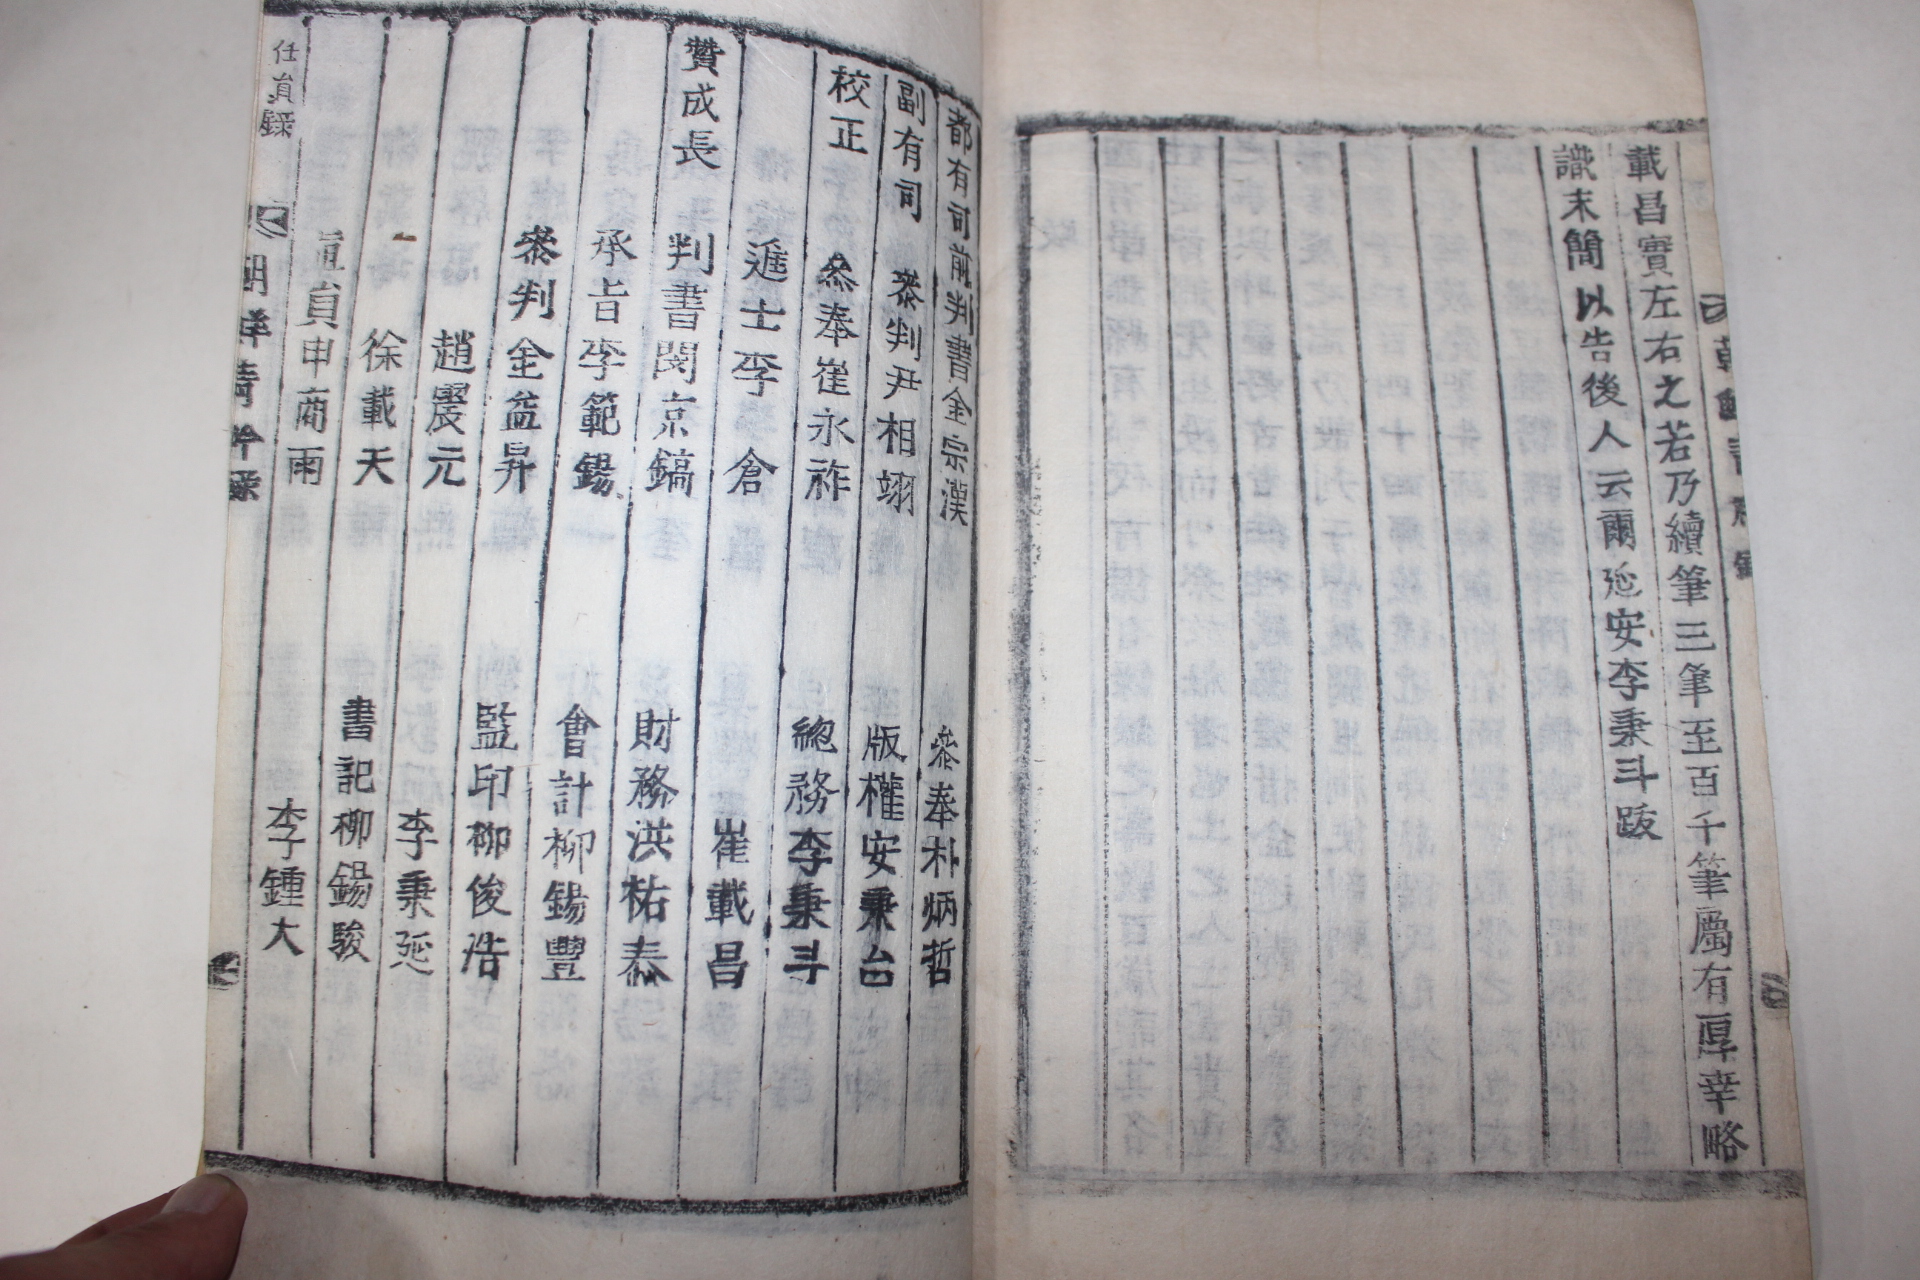 載昌實左右之若乃續筆三筆至百千筆屬有厚幸略
識末簡以告後人云爾延安李秉斗跋
都有司前判書金宗漢
參奉朴炳哲
副有司
參判尹相翊
版權安秉台
校正
參奉崔永祚
總務李秉斗
進士李倉
崔載昌
贊成長
判書閔京鎬
財務洪祐泰
承旨李範錫
會計柳錫豐
參判金益昇
監印柳俊浩
趙震元
李秉延
徐載天
書記柳錫駿
直員申商雨
李鍾大
任員錄